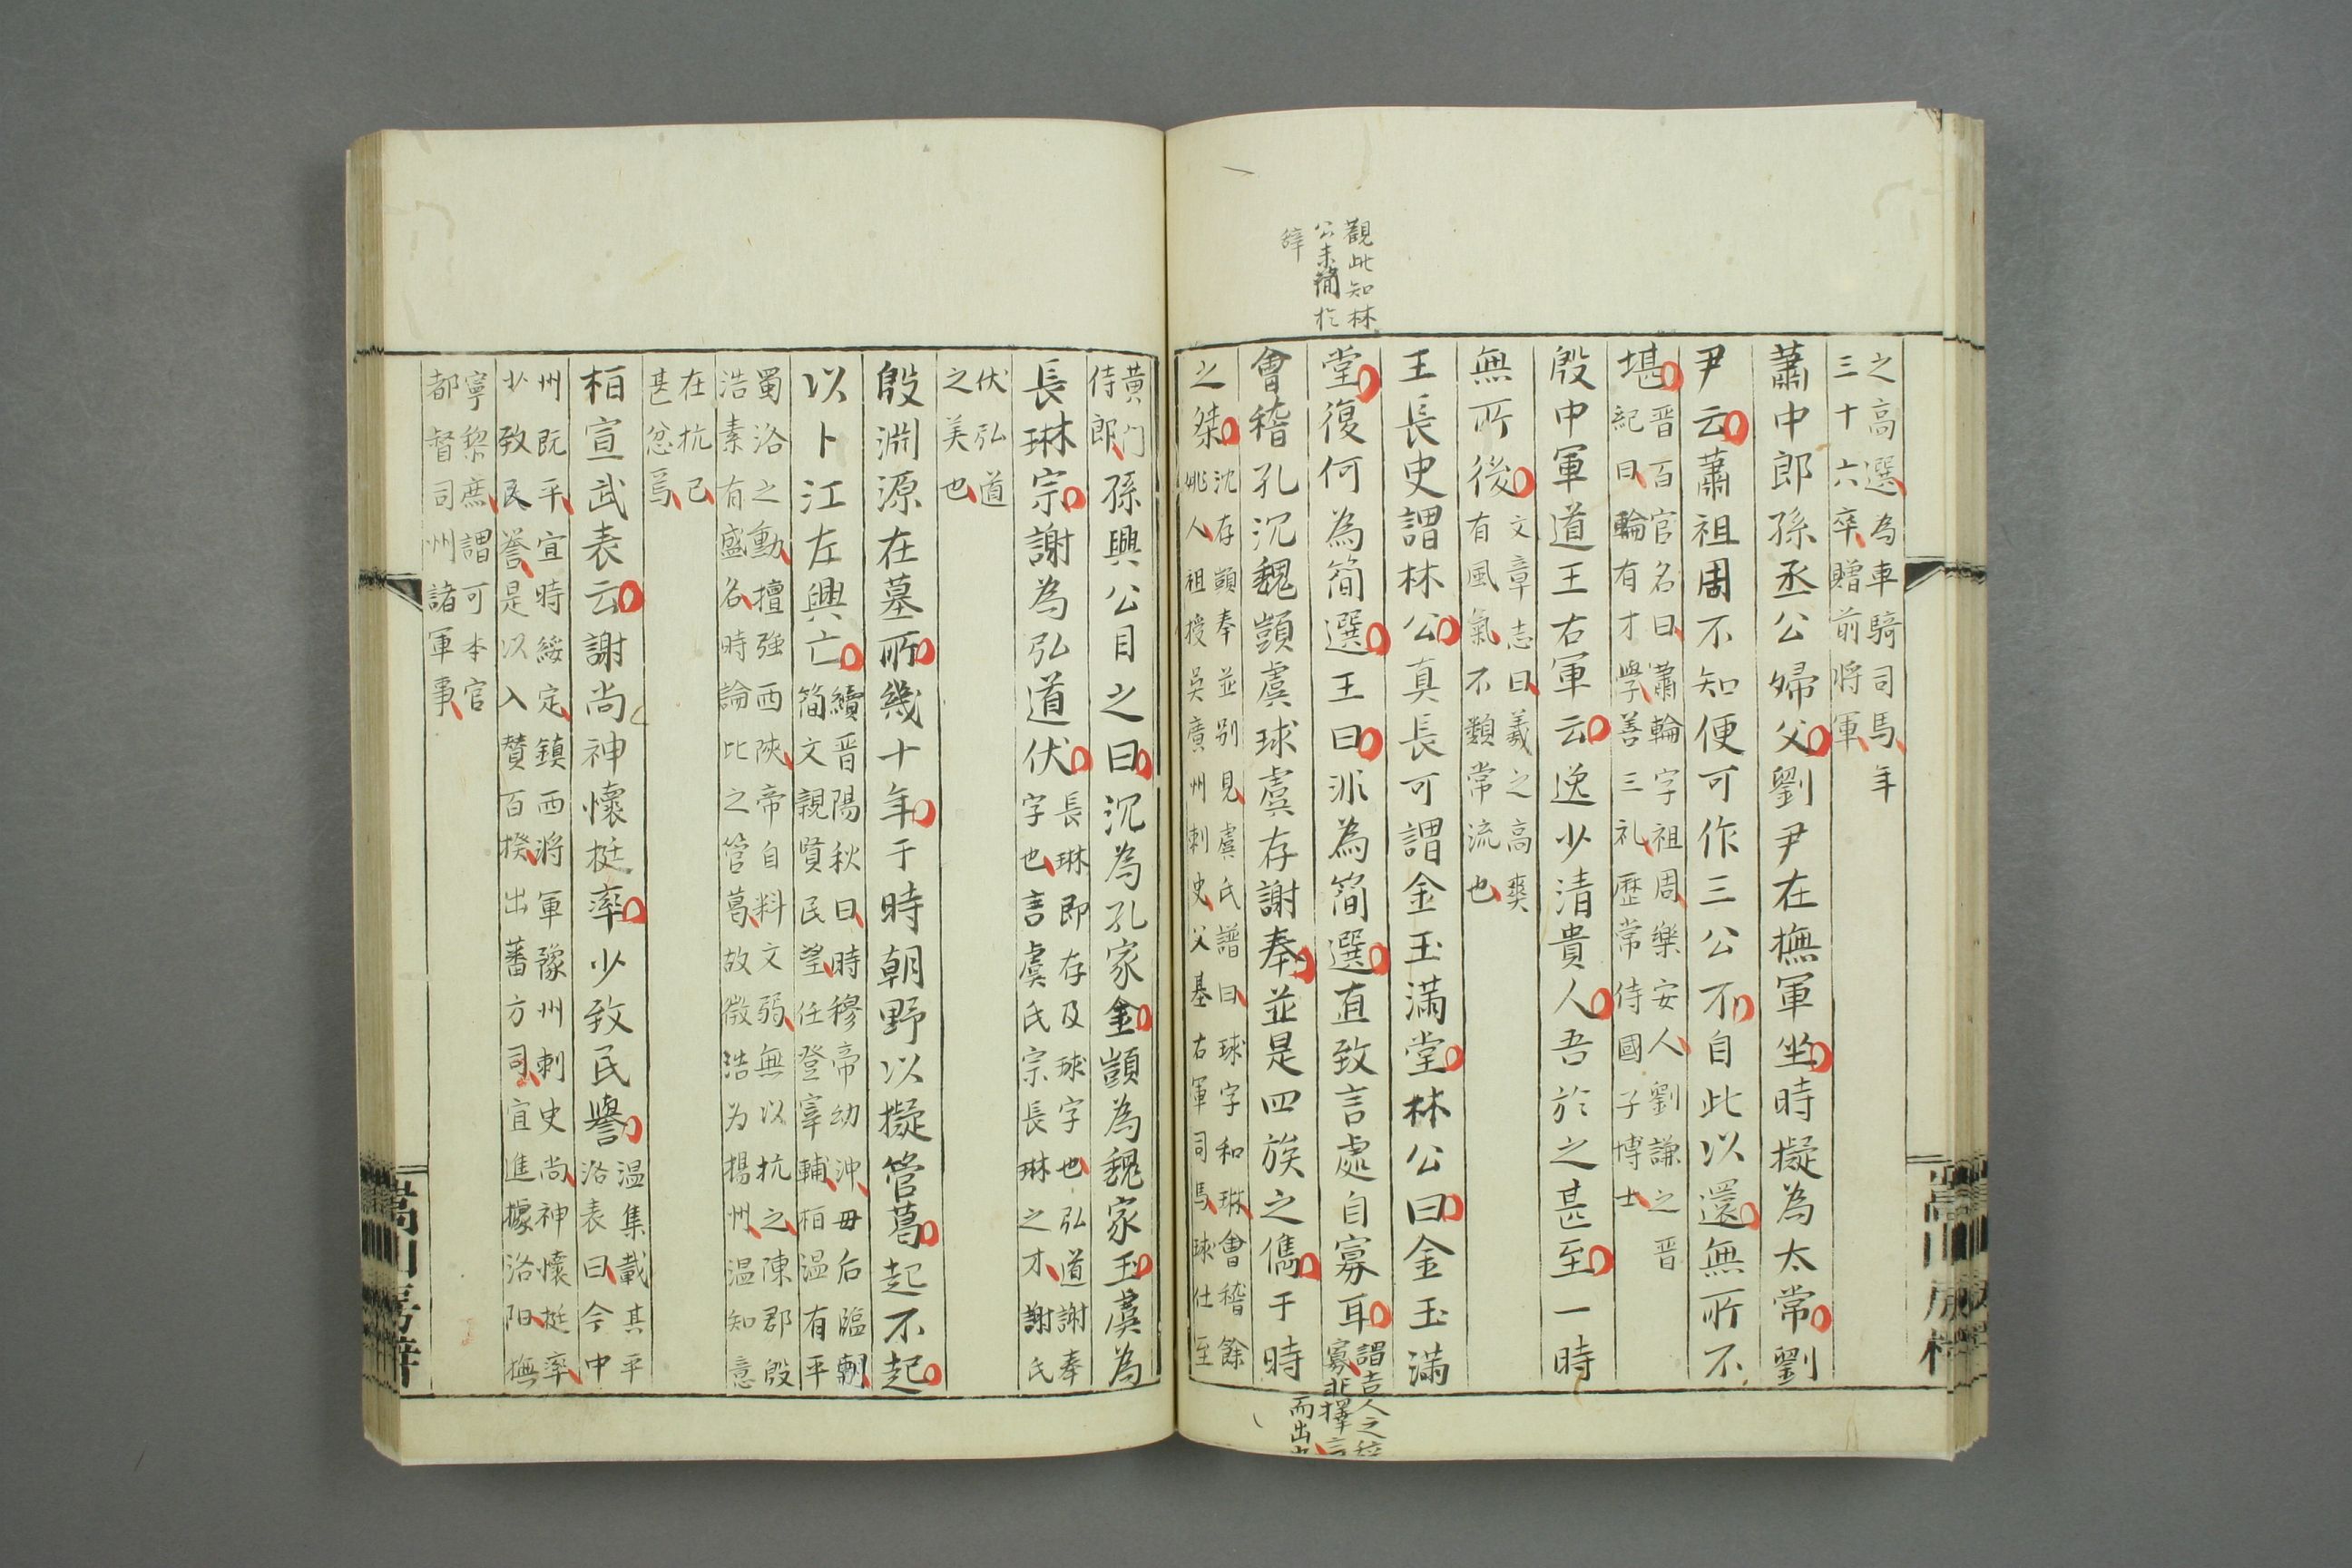 觀此知林
公未簡於
辭
之高選為車騎司馬年
三十六卒贈前將軍
蕭中郎孫丞公婦父劉尹在撫軍坐時擬為太常劉
尹云蕭祖周不知便可作三公不自此以還無所不
堪
晋百官名曰蕭輪字祖周樂安人劉謙之晋
紀曰輪有才學善三礼歷常侍國子博士
殷中軍道王右軍云逸少清貴人吾於之甚至一時
無所後
文章志曰羲之高爽
有風氣不類常流也
王長史謂林公真長可謂金玉滿堂林公曰金玉滿
堂復何為簡選王曰非為簡選直致言處自寡耳
謂吉人之辞
寡非擇言
而出也
會稽孔沉魏顗虞球虞存謝奉並是四族之儁于時
之桀
沈存顗奉並别見虞氏譜曰球字和琳會稽餘
姚人祖授吳廣州刺史父基右軍司馬球仕至
黃門
侍郎
孫興公目之曰沉為孔家金顗為魏家玉虞為
長琳宗謝為弘道伏
長琳即存及球字也弘道謝奉
字也言虞氏宗長琳之才謝氏
伏弘道
之美也
殷淵源在墓所幾十年于時朝野以擬管葛起不起
以卜江左興亡
續晋陽秋曰時穆帝幼沖毋后臨朝
簡文親賢民望任登宰輔桓溫有平
蜀洛之勳擅強西陝帝自料文弱無以抗之陳郡殷
浩素有盛名時論比之管葛故徴浩为揚州温知意
在抗己
甚忿焉
桓宣武表云謝尚神懷挺率少致民譽
温集載其平
洛表曰今中
州既平宜時綏定鎮西將軍豫州刺史尚神懷挺率
少致民誉是以入贊百揆出蕃方司宜進據洛阳撫
寧黎庶謂可本官
都督司州諸軍事